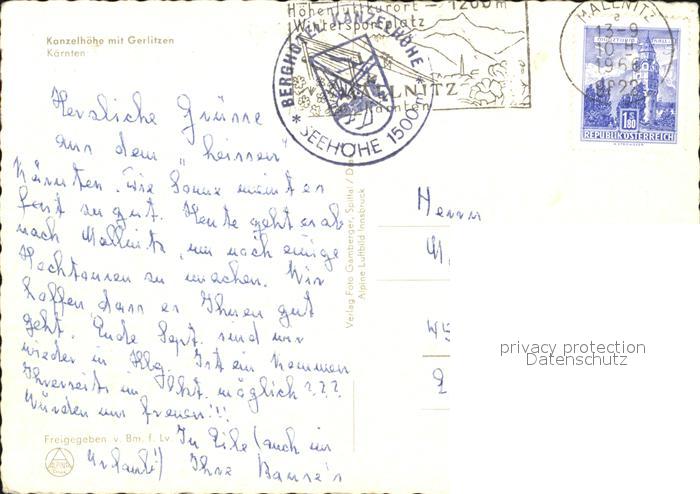 Kanzelhöhe mit Gerlitzen
Kärnten
Höhenluftkurort – 1200m
Wintersportplatz
MALLNITZ
Kärnten
BERGHOTEL KANZELHÖHE
* SEEHÖHE 1500m *
MALLNITZ
13-9
1966
9822
1.80
REPUBLIK ÖSTERREICH
Herzliche Grüsse
aus dem "heissen"
Kärnten. Die Sonne meint es
fast zu gut. Heute geht es ab
nach Mallnitz, um noch einige
Hochtouren zu machen. Wir
hoffen dass es Ihnen gut
geht. Ende Sept. sind wir
wieder in Hbg. Ist ein Kommen
Ihrerseits im Okt. möglich???
Würden uns freuen!!!
In Eile (auch im
Urlaub!) Ihre
Freigegeben v. Bm. f. Lv.
ALPINE
Verlag Foto Gamberger, Spittal / Drau
Alpine Luftbild Innsbruck
Herrn
privacy protection
Datenschutz